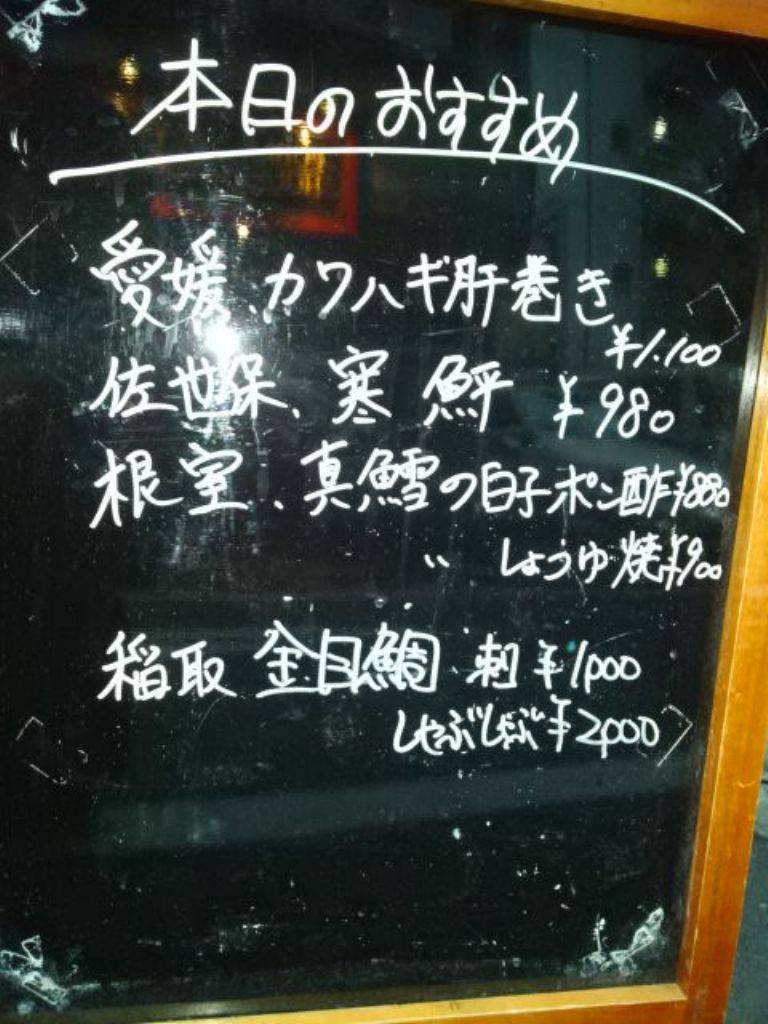 本日のおすすめ
愛媛、カワハギ肝巻き
¥1.100
佐世保、寒鮃 ¥980
根室、真鱈の白子ポン酢¥880
〃 しょうゆ焼¥900
稲取 金目鯛 刺 ¥1000
しゃぶしゃぶ ¥2000